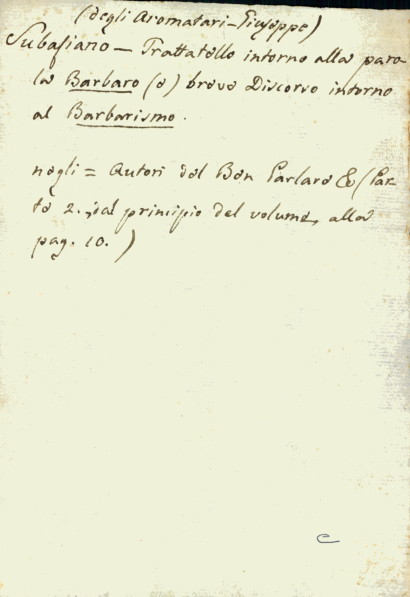 (degli Aromatari - Giuseppe)
Subasiano — Trattatello intorno alla paro-
la Barbaro (e) breve Discorso intorno
al Barbarismo.
negli = Autori del Ben Parlare & (Par-
te 2., dal principio del volume, alla
pag. 10.)